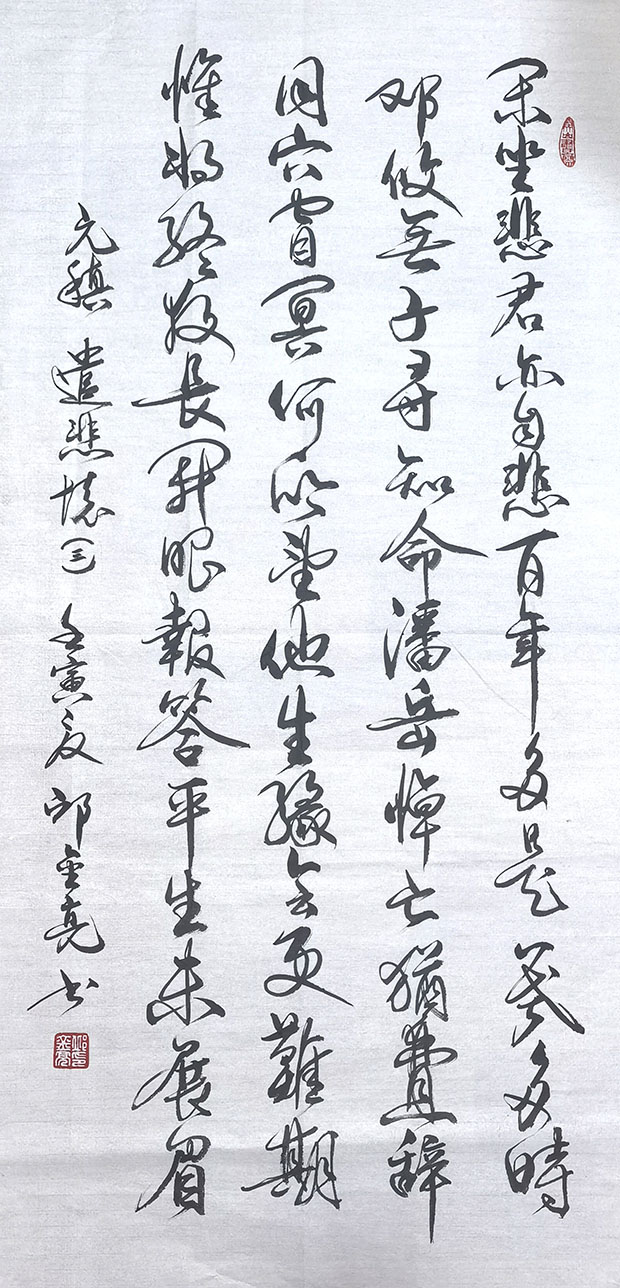 閑坐悲君亦自悲百年多是幾多時
邓攸無子尋知命潘岳悼亡猶費辭
同穴窅冥何所望他生緣會更難期
惟将終夜長開眼報答平生未展眉
元稹 遣悲懷(三) 壬寅夏 邱金亮书